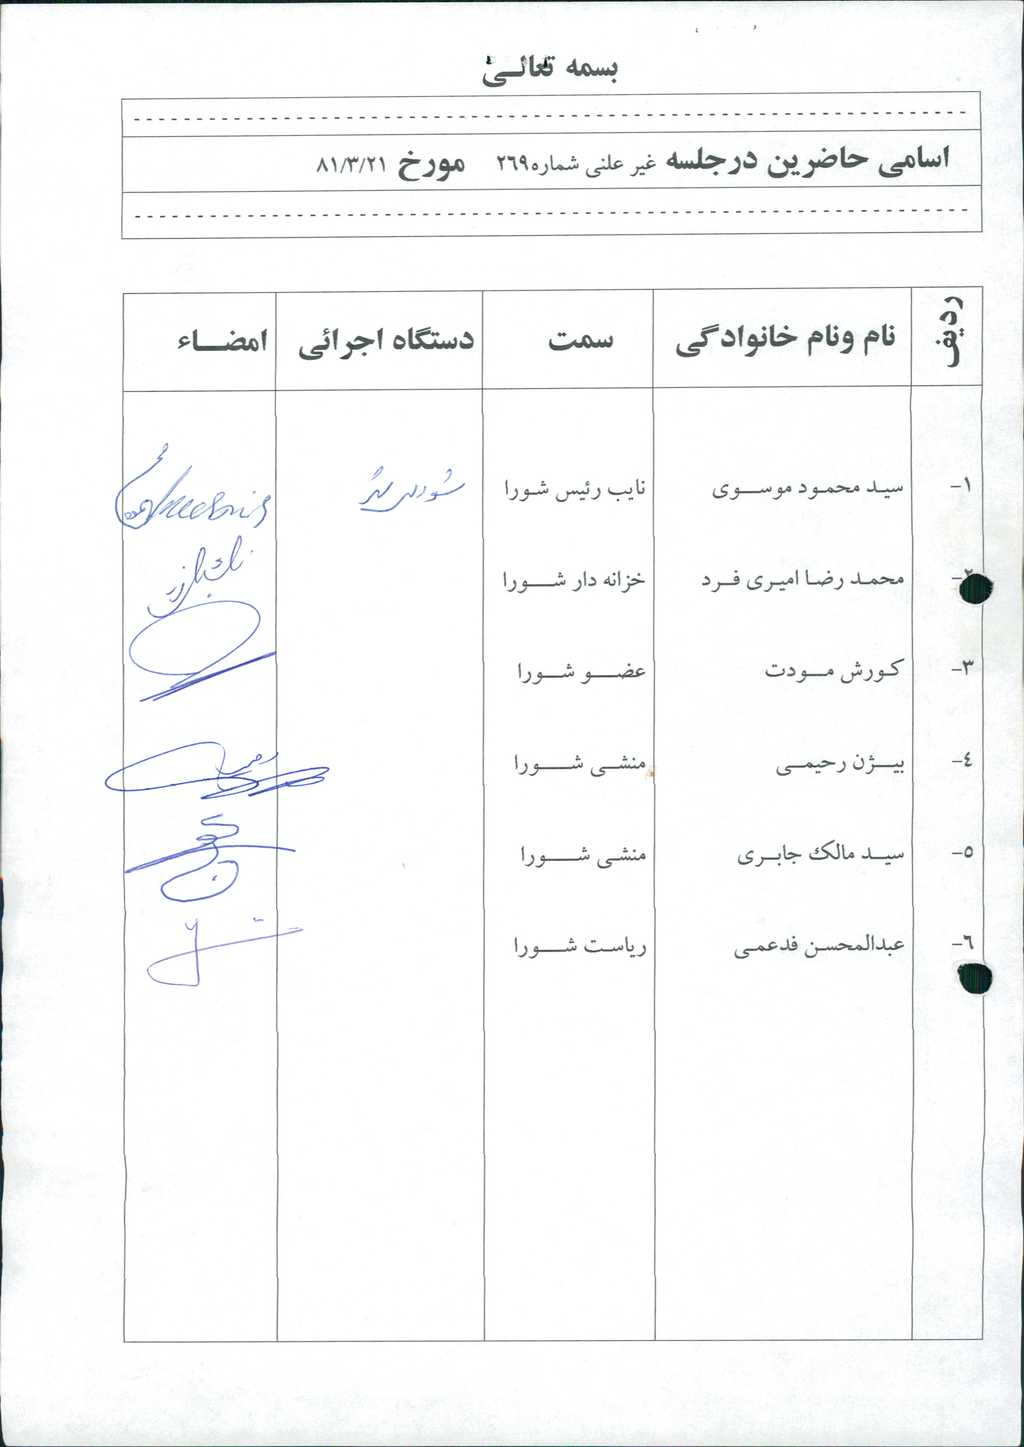 بسمه تعالی
اسامی حاضرین درجلسه غیر علنی شماره ۲٦۹ مورخ ۸۱/۳/۲۱
ردیف نام ونام خانوادگی سمت دستگاه اجرائی امضاء
۱- سید محمود موسوی نایب رئیس شورا شورای شهر
۲- محمد رضا امیری فرد خزانه دار شورا
۳- کورش مودت عضو شورا
٤- بیژن رحیمی منشی شورا
۵- سید مالک جابری منشی شورا
٦- عبدالمحسن فدعمی ریاست شورا